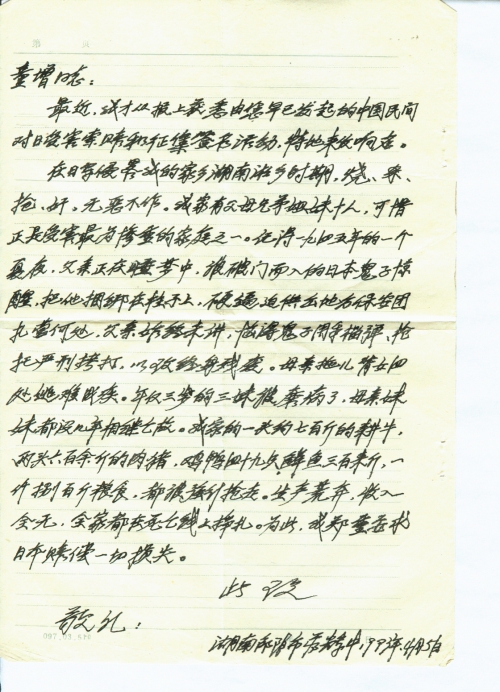 童增同志：
最近，我才从报上获悉由您早已发起的中国民间
对日受害索赔和征集签名活动，特地来信响应。
在日寇侵略我的家乡湖南湘乡时期，烧、杀、
抢、奸，无恶不作。我家有父母兄弟姐妹十人，可惜
正是受害最为惨重的家庭之一。记得一九四五年的一个
夏夜，父亲正在睡梦中，被破门而入的日本鬼子惊
醒，把他捆绑在柱子上，硬逼迫供出地方保安团
扎营何处，父亲始终未讲，惨遭鬼子用手榴弹、枪
托严刑拷打，以致终身残废。母亲拖儿背女四
处逃难成疾。年仅三岁的三妹
妹都没几年相继亡故。我家的一头约七百斤的耕牛，
两头六百余斤的肉猪，鸡鸭四十九只鲜鱼三百来斤，一
仟捌百斤粮食，都被强行抢走。生产荒弃，收入
全无，全家都在死亡线上挣扎。为此，我郑重要求
日本赔偿一切损失。
此致
敬礼！
097.03.
湖南 市 1993年4月5日